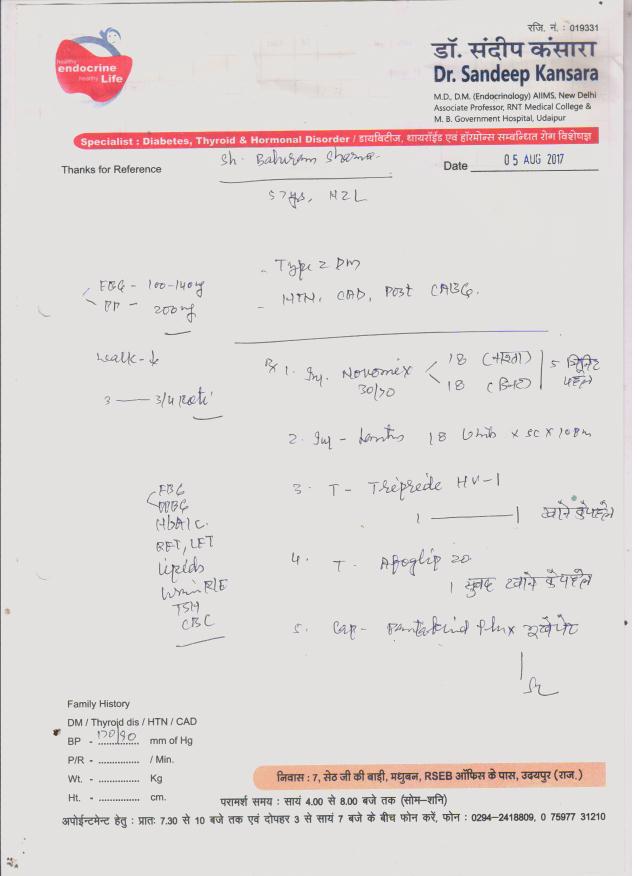 रजि. नं. : 019331
healthy
endocrine
healthy Life
डॉ. संदीप कंसारा
Dr. Sandeep Kansara
M.D., D.M. (Endocrinology) AIIMS, New Delhi
Associate Professor, RNT Medical College &
M. B. Government Hospital, Udaipur
Specialist : Diabetes, Thyroid & Hormonal Disorder / डायबिटीज, थायरॉईड एवं हॉरमोन्स सम्बन्धित रोग विशेषज्ञ
Thanks for Reference
Sh. Baburam Sharma
Date 05 AUG 2017
57 yrs,
- Type 2 DM
- HTN, CAD, Post CABG.
FBG - 100-140 mg
PP - 200 mg
walk -
3 — 3/4 Roti
Rx 1. Inj. Novomix 30/70
18 (नाश्ता)
18 (डिनर)
5 मिनिट पहले
2. Inj - Lantus 18 Units x SC x 10 Pm
3. T - Tripride HV-1
1 — 1 खाने के पहले
4. T. Apoglip 20
1 सुबह खाने के पहले
5. Cap -
FBG
PPBG
HbA1c
RFT, LFT
Lipids
Urine R/E
TSH
CBC
Family History
DM / Thyroid dis / HTN / CAD
BP - 170/90 mm of Hg
P/R - .............. / Min.
Wt. - .............. Kg
Ht. - .............. cm.
निवास : 7, सेठ जी की बाड़ी, मधुबन, RSEB ऑफिस के पास, उदयपुर (राज.)
परामर्श समय : सायं 4.00 से 8.00 बजे तक (सोम-शनि)
अपोईन्टमेण्ट हेतु : प्रातः 7.30 से 10 बजे तक एवं दोपहर 3 से सायं 7 बजे के बीच फोन करें, फोन : 0294-2418809, 0 75977 31210